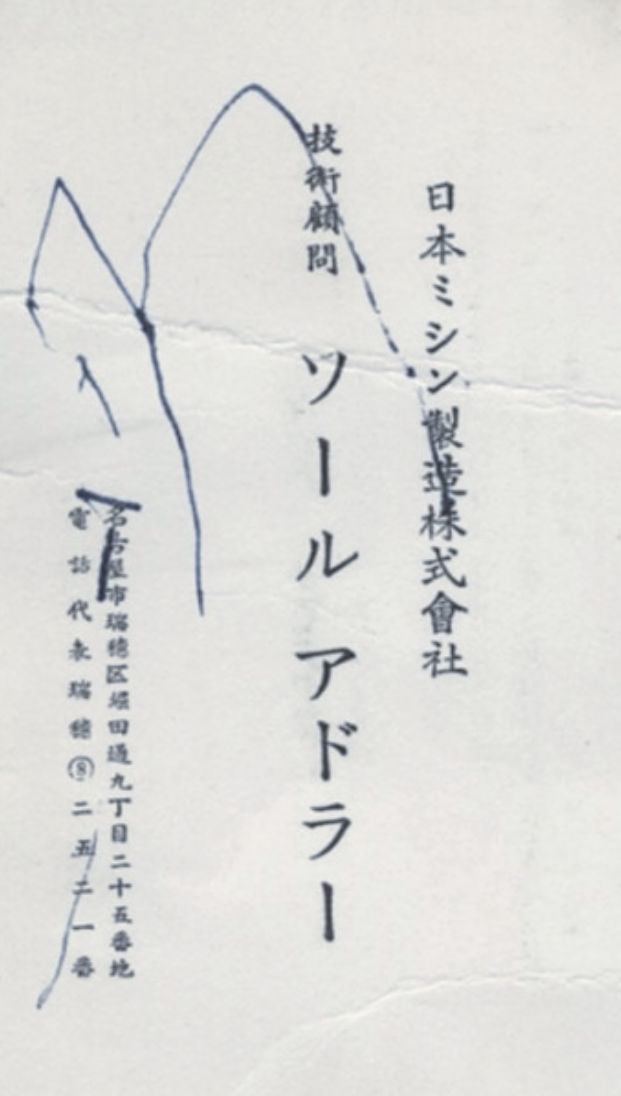 日本ミシン製造株式會社
技術顧問
ソール アドラー
名古屋市瑞穂区堀田通九丁目二十五番地
電話代表瑞穂⑧二五二一番